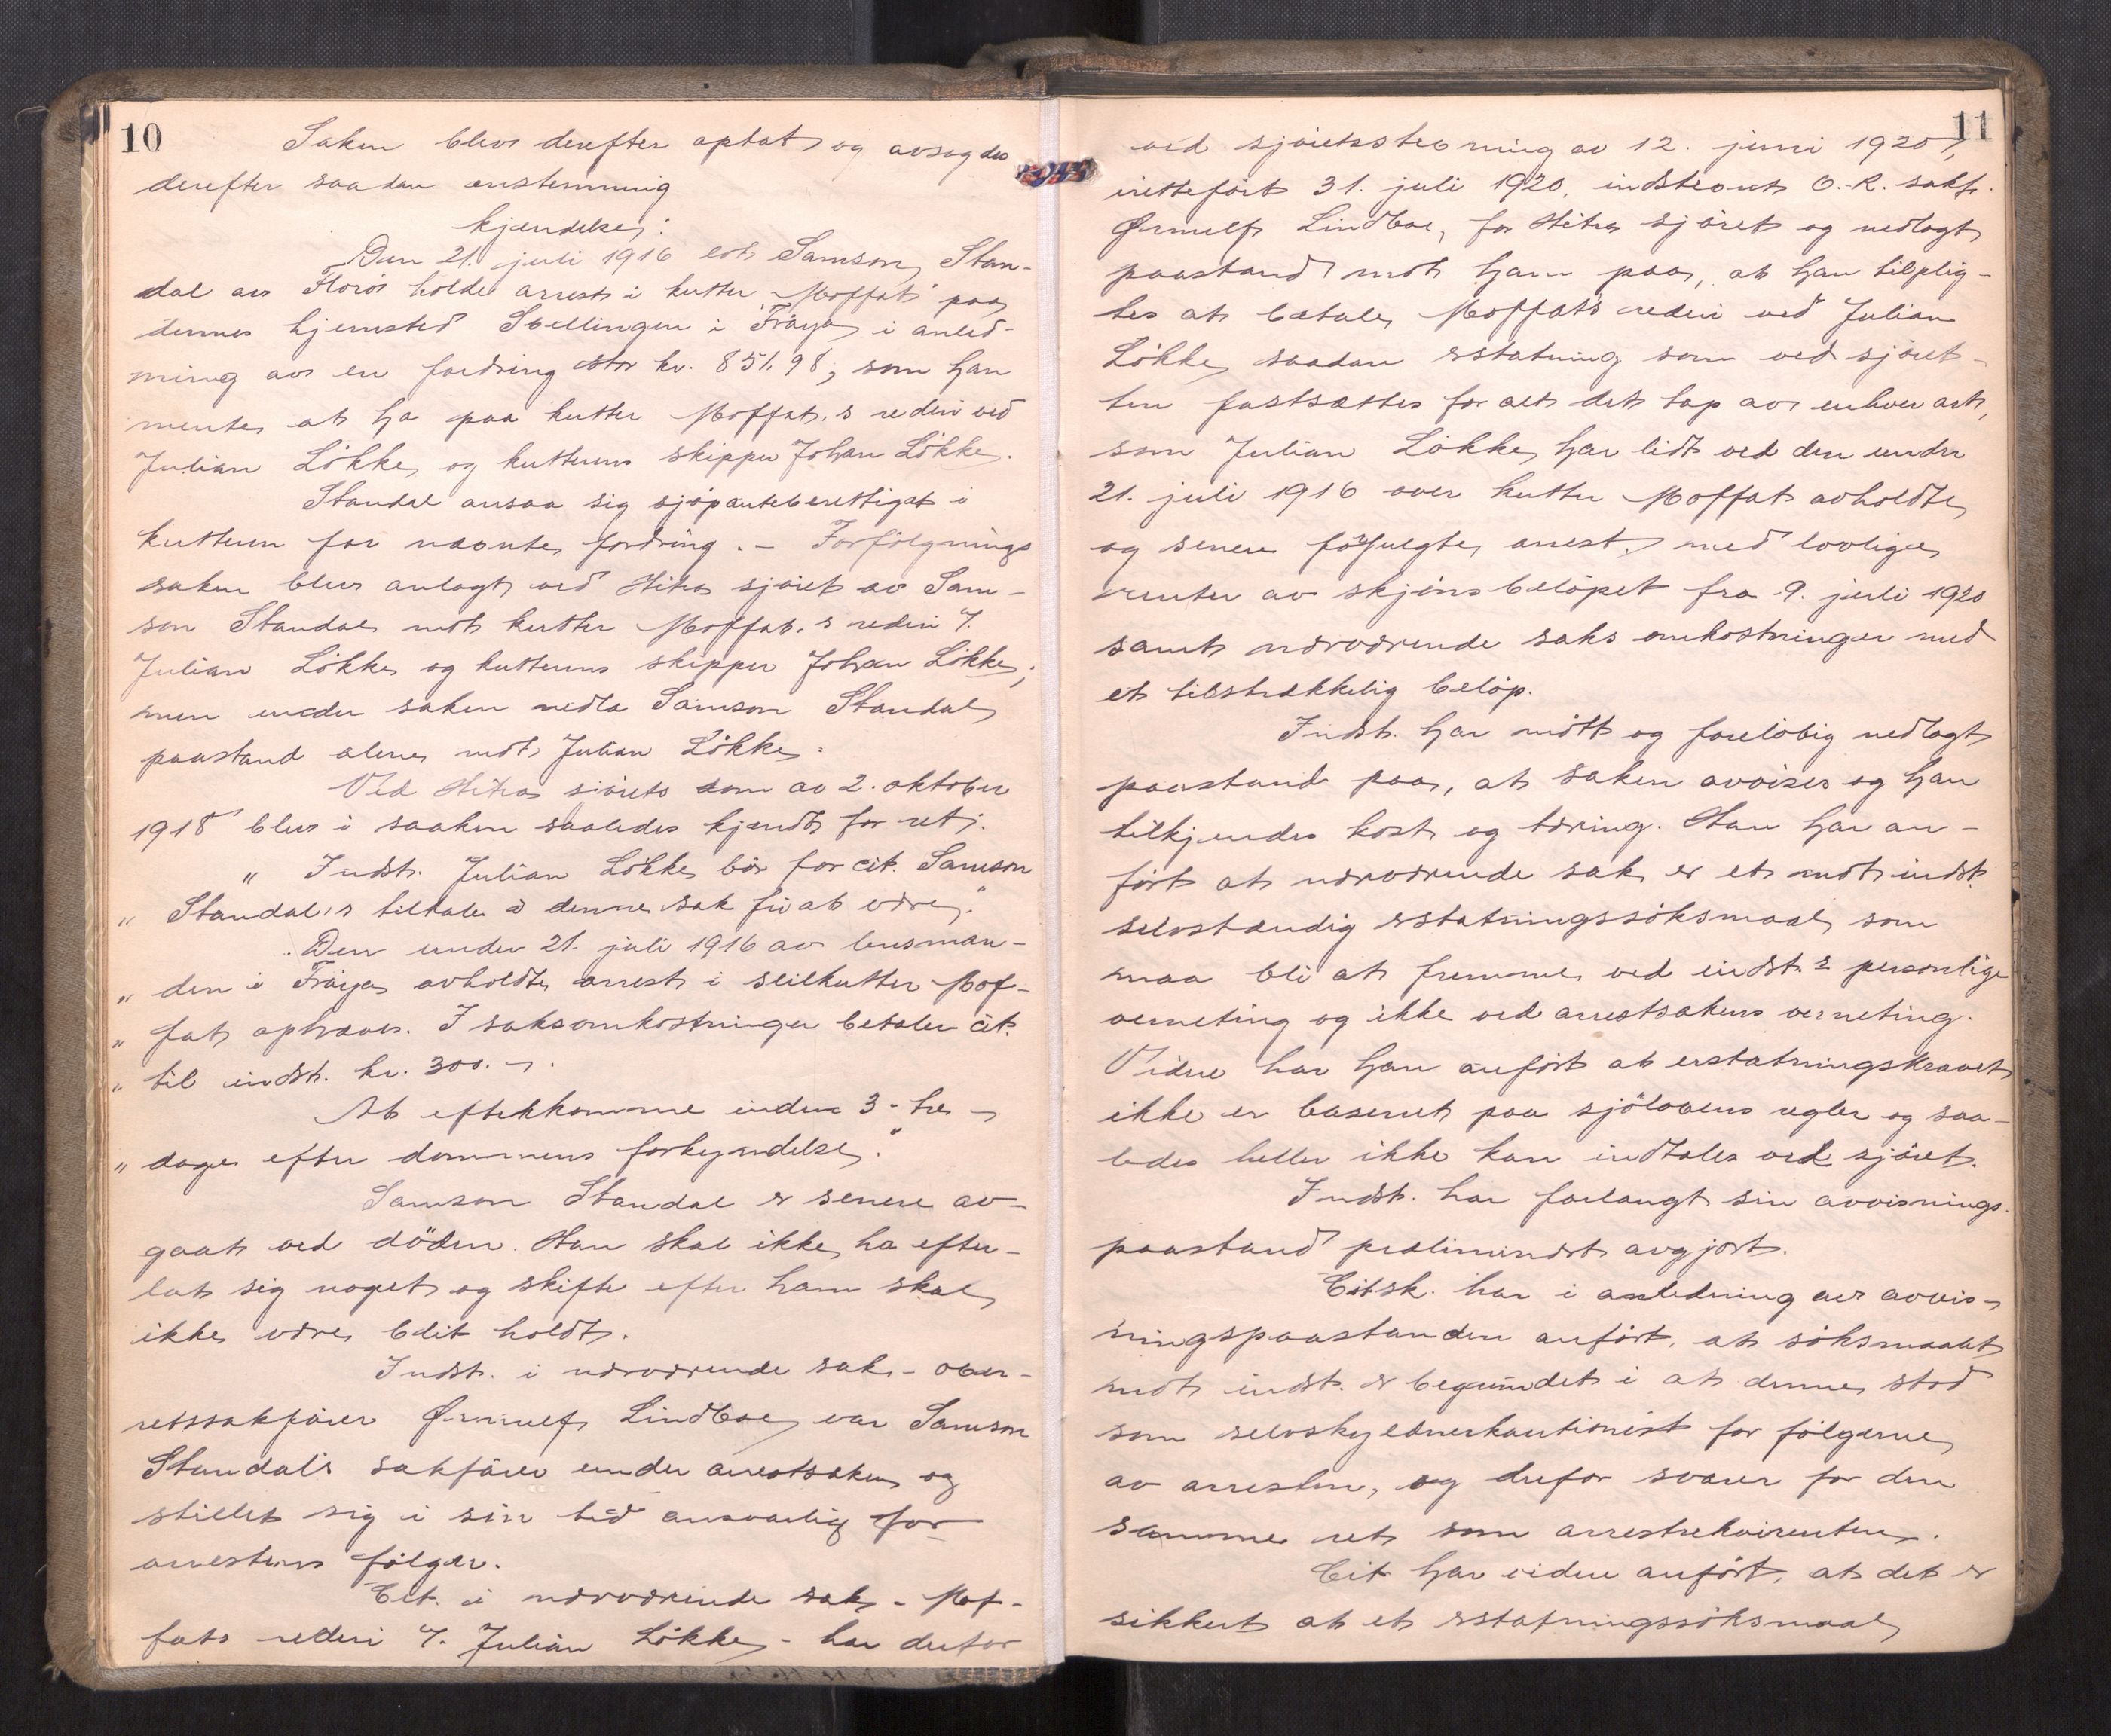 10
Saken blev derefter optat og avsagdes
derefter saadan enstemmig
kjendelse:
Den 21. juli 1916 lot Samson Stan-
dal av Florö holde arrest i kutter "Moffat" paa
dennes hjemsted Svellingen i Fröya i anled-
ning av en fordring stor kr. 851.98, som han
mente at ha paa kutter Moffat.s rederi ved
Julian Lökke og kutterens skipper Johan Lökke.
Standal ansaa sig sjöpanteberettiget i
kutteren for nævnte fordring. - Forfölgnings
saken blev anlagt ved Hitra sjöret av Sam-
son Standal mot kutter Moffat.s rederi v.
Julian Lökke og kutterens skipper Johan Lökke;
men under saken nedla Samson Standal
paastand alene mot Julian Lökke.
Ved Hitra sjörets dom av 2. oktober
1918 blev i saaken saaledes kjendt for ret:
" Indst. Julian Lökke bör for cit. Samson
" Standal's tiltale i denne sak fri at være."
Den under 21. juli 1916 av lensman-
" den i Fröya avholdte arrest i seilkutter Mof-
" fat ophæves. I saksomkostninger betaler cit.
" til indst. kr. 300.-.
At efterkomme inden 3 - tre -
" dage efter dommens forkyndelse."
Samson Standal er senere av-
gaat ved döden. Han skal ikke ha efter-
lat sig noget og skifte efter ham skal
ikke være blit holdt.
Indst. i nærværende sak - over-
retssakförer Ørnulf Lindboe var Samson
Standal's sakförer under arrestsaken og
stillet sig i sin tid ansvarlig for
arrestens fölger.
Cit. i nærværende sak - Mof-
fats rederi v. Julian Lökke - har derfor
11
ved sjöretsstevning av 12. juni 1920,
irettefört 31. juli 1920, indstevnt O.R. sakf.
Ørnulf Lindboe, for Hitra sjöret og nedlagt
paastand mot ham paa, at han tilplig-
tes at betale Moffat's rederi ved Julian
Lökke saadan erstatning som ved sjöret-
ten fastsættes for alt det tap av enhver art,
som Julian Lökke har lidt ved den under
21. juli 1916 over kutter Moffat avholdte
og senere forfulgte arrest, med lovlige
renter av skjönsbelöpet fra 9. juli 1920
samt nærværende saks omkostninger med
et tilstrækkelig belöp.
Indst. har mött og foreløbig nedlagt
paastand paa, at saken avvises og han
tilkjendes kost og tæring. Han har an-
fört at nærværende sak er et mot indst.
selvstændig erstatningssöksmaal som
maa bli at fremme ved indst.s personlige
verneting og ikke ved arrestsakens verneting.
Videre har han anfört at erstatningskravet
ikke er baseret paa sjölovens regler og saa-
ledes heller ikke kan indtales ved sjöret.
Indst. har forlangt sin avvisnings-
paastand præliminært avgjort.
Citsk. har i anledning av avvis-
ningspaastanden anfört, at söksmaalet
mot indst. er begrundet i at denne stod
som selvskyldnerkautionist for fölgerne
av arresten, og derfor svarer for den
samme ret som arrestrekvirenten.
Cit har videre anfört, at det er
sikkert at et erstatningssöksmaal